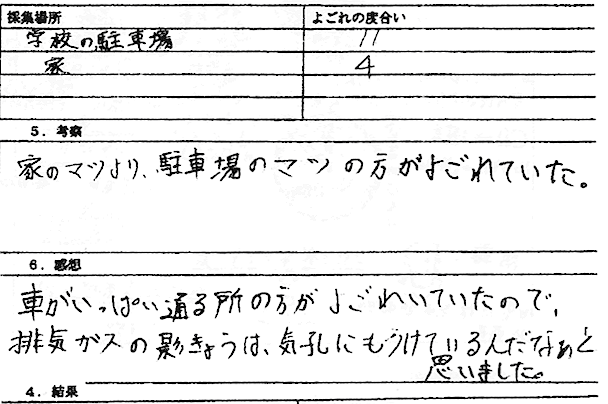 採集場所 よごれの度合い
学校の駐車場 11
家 4
5．考察
家のマツより、駐車場のマツの方がよごれていた。
6．感想
車がいっぱい通る所の方がよごれいていたので、
排気ガスの影きょうは、気孔にもうけているんだなぁと
思いました。
4．結果